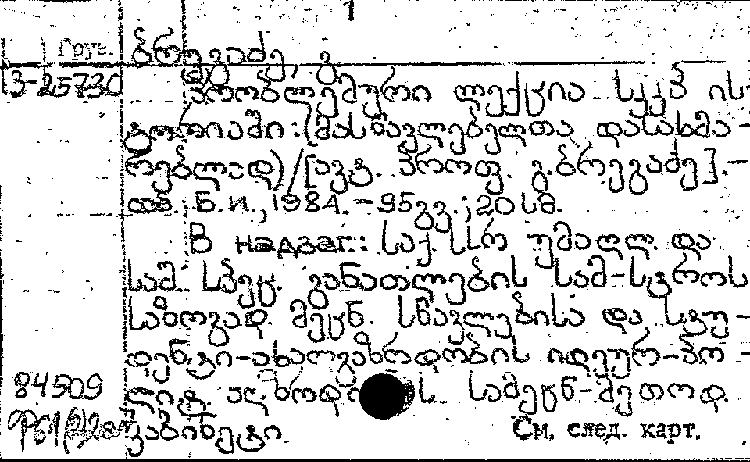 1
Груз. ბრეგაძე, გ.
3-25730 პრობლემური ლექცია სკკპ ის-
ტორიაში : (მასწავლებელთა დასახმა-
რებლად) / [ავტ. პროფ. გ. ბრეგაძე]. –
თბ. : Б. и., 1984. – 95გვ. ; 20 სმ.
В надзаг.: საქ. სსრ უმაღლ. და
სამ. სპეც. განათლების სამ-სტროს
საზოგად. მეცნ. სწავლებისა და სტუ-
დენტი-ახალგაზრდობის იდეურ-პო-
84509 ლიტ. აღზრდის სამეცნ-მეთოდ.
კაბინეტი.
См. след. карт.